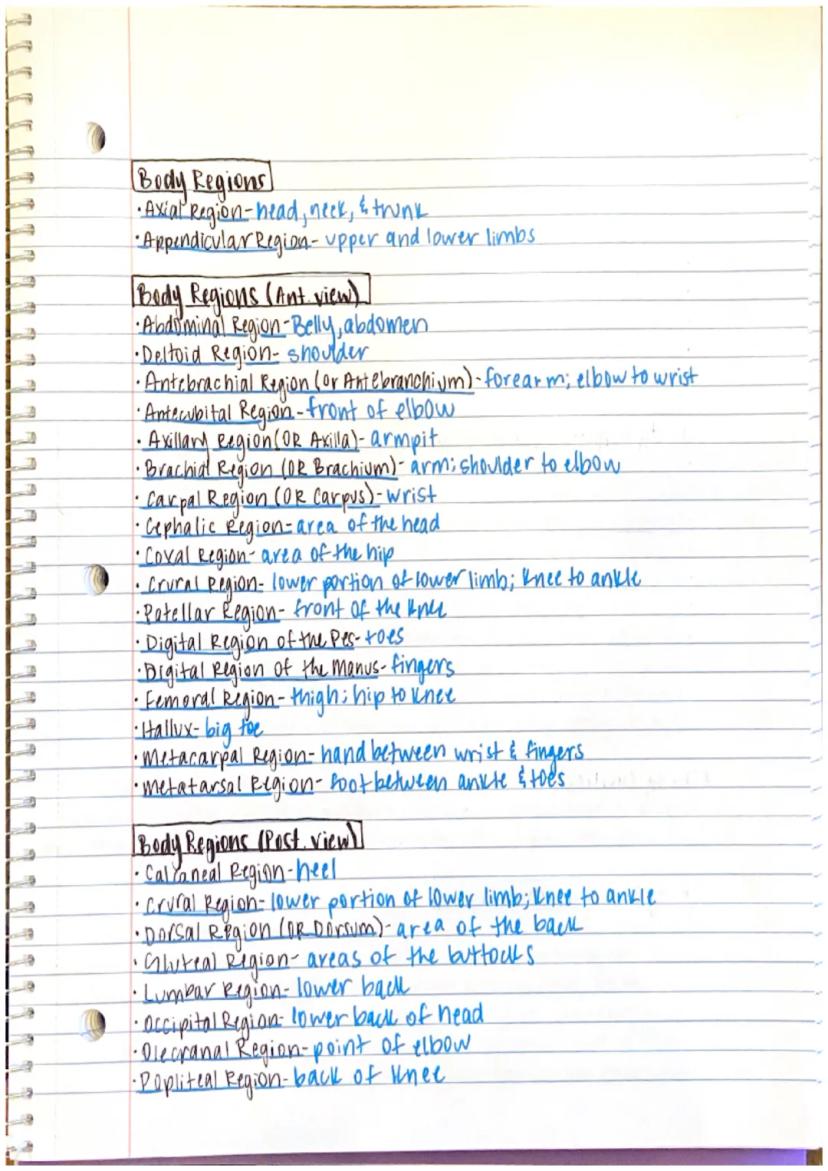 Body Regions
·Axial Region-head, neck, & trunk
·Appendicular Region- upper and lower limbs
Body Regions (Ant. view)
·Abdominal Region-Belly, abdomen
·Deltoid Region- shoulder
·Antebrachial Region (or Antebranchium)-forearm; elbow to wrist
·Antecubital Region-front of elbow
·Axillary Region (OR Axilla)- armpit
·Brachial Region (OR Brachium)- arm; shoulder to elbow
·Carpal Region (OR Carpus)-wrist
·Cephalic Region-area of the head
·Coxal Region- area of the hip
·Crural Region- lower portion of lower limb; knee to ankle
·Patellar Region- front of the knee
·Digital Region of the Pes-toes
·Digital Region of the Manus-fingers
·Femoral Region-thigh; hip to knee
·Hallux-big toe
·Metacarpal Region-hand between wrist & fingers
·Metatarsal Region- foot between ankle & toes
Body Regions (Post. view)
·Calcaneal Region-heel
·Crural Region-lower portion of lower limb; knee to ankle
·Dorsal Region (OR Dorsum)-area of the back
·Gluteal Region- areas of the buttocks
·Lumbar Region-lower back
·Occipital Region-lower back of head
·Olecranal Region-point of elbow
·Popliteal Region-back of knee